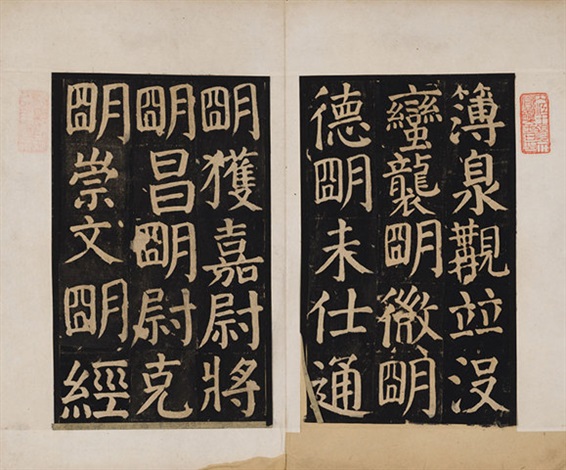 簿泉觀竝没
蠻襲朙微朙
德朙未仕通
朙獲嘉尉將
朙昌朙尉克
朙崇文朙經